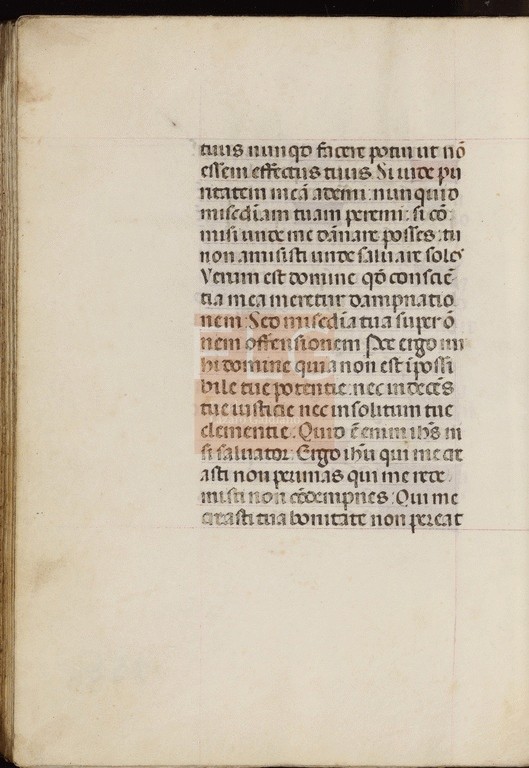 tuus nunqd facere potui ut nō
essem effectus tuus Si inde pu
ritatem meā ademi : nunquid
misēdiam tuam peremi : si cō
misi unde me dānare posses : tu
non amisisti unde saluare soles
Verum est domine qd conscie
tia mea meretur dampnatio
nem : Sed misēdia tua super ō
nem offensionem Parce ergo mi
hi domine quia non est īpossi
bile tue potentie : nec indecēs
tue iusticie nec insolitum tue
clementie . Quid ē enim ihs ni
si saluator . Ergo ihu qui me cre
asti non perimas qui me rede
misti non cōdempnes : Qui me
creasti tua bonitate non pereat